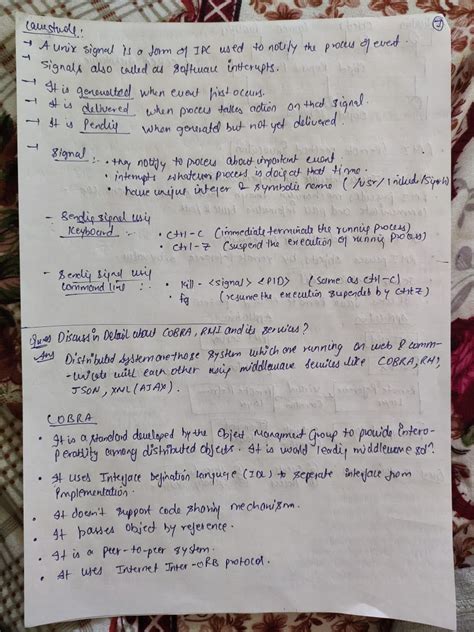 Case study :
→ A unix signal is a form of IPC used to notify the process of event
→ Signals also called as software interrupts.
→ It is generated when event first occurs.
→ It is delivered when process takes action on that signal.
→ It is Pending when generated but not yet delivered.
→ Signal :- • they notify to process about important event
• interrupts whatever process is doing at that time.
• have unique integer & symbolic name (/usr/include/
- Sending signal using
keyboard • Ctrl-C (immediate terminate the running process)
• Ctrl-Z (suspend the execution of running process)
- Sending signal using
command line : • Kill - <signal> <PID> (same as ctrl-C)
• fg (resume the execution suspended by ctrl Z)
Discuss in Detail about COBRA, RMI and its services?
Ans Distributed system are those system which are running on web & comm-
-unicate with each other using middleware services like COBRA, RMI,
JSON, XML (AJAX).
COBRA
• It is a standard developed by the Object Managment Group to provide intero-
perability among distributed objects. It is world leading middleware solⁿ.
• It uses Interface Defination language (IDL) to seperate interface from
implementation.
• It doesn't support code sharing mechanism.
• It passes object by reference.
• It is a peer-to-peer system.
• It uses Internet Inter-ORB protocol.